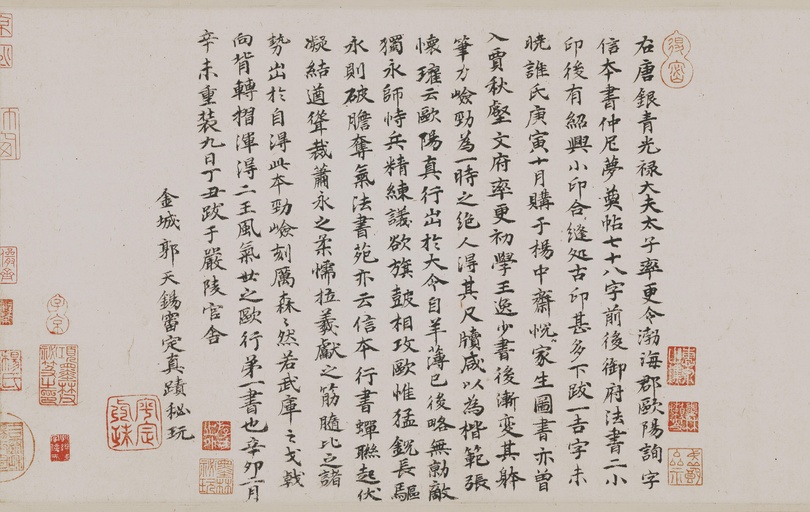 右唐銀青光禄大夫太子率更令渤海郡歐陽詢字
信本書仲尼夢奠帖七十八字前後御府法書二小
印後有紹興小印合縫処古印甚多下跋一吉字未
曉誰氏庚寅十月購于楊中齋悅家生圖書亦曽
入賈秋壑文府率更初學王逸少書後漸變其躰
筆力嶮勁為一時之絶人得其尺牘咸以為楷範張
懷瓘云歐陽真行出於大令自羊薄已後略無勍敵
獨永師恃兵精練議欲旗鼓相攻歐惟猛銳長驅
永則破膽奪氣法書苑亦云信本行書蟬聯起伏
凝結遒聳裁蕭永之柔懦拉羲獻之筋髓比之諸
勢出於自得此本勁嶮刻厲森〻然若武庫之戈戟
向背轉摺渾得二王風氣世之歐行第一書也辛卯二月
辛未重装九日丁丑跋于嚴陵官舎
金城郭天錫審定真蹟秘玩